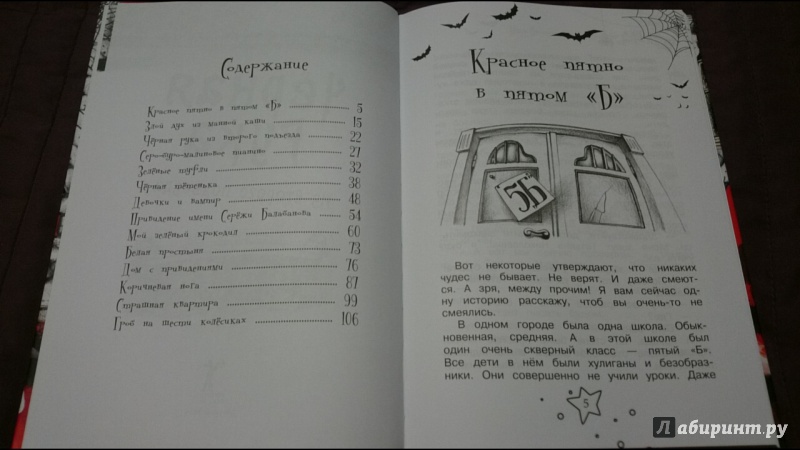 Содержание
Красное пятно в пятом «Б» 5
Злой дух из манной каши 15
Чёрная рука из второго подъезда 22
Серо-буро-малиновое пианино 27
Зелёные туфли 32
Чёрная тётенька 38
Девочки и вампир 48
Привидение имени Серёжи Балабанова 54
Мой зелёный крокодил 60
Белая простыня 73
Дом с привидениями 76
Коричневая нога 87
Страшная квартира 99
Гроб на шести колёсиках 106
Красное пятно
в пятом «Б»
5Б
Вот некоторые утверждают, что никаких
чудес не бывает. Не верят. И даже смеют-
ся. А зря, между прочим! Я вам сейчас од-
ну историю расскажу, чтоб вы очень-то не
смеялись.
В одном городе была одна школа. Обык-
новенная, средняя. А в этой школе был
один очень скверный класс — пятый «Б».
Все дети в нём были хулиганы и безобраз-
ники. Они совершенно не учили уроки. Даже
5
Лабиринт.ру